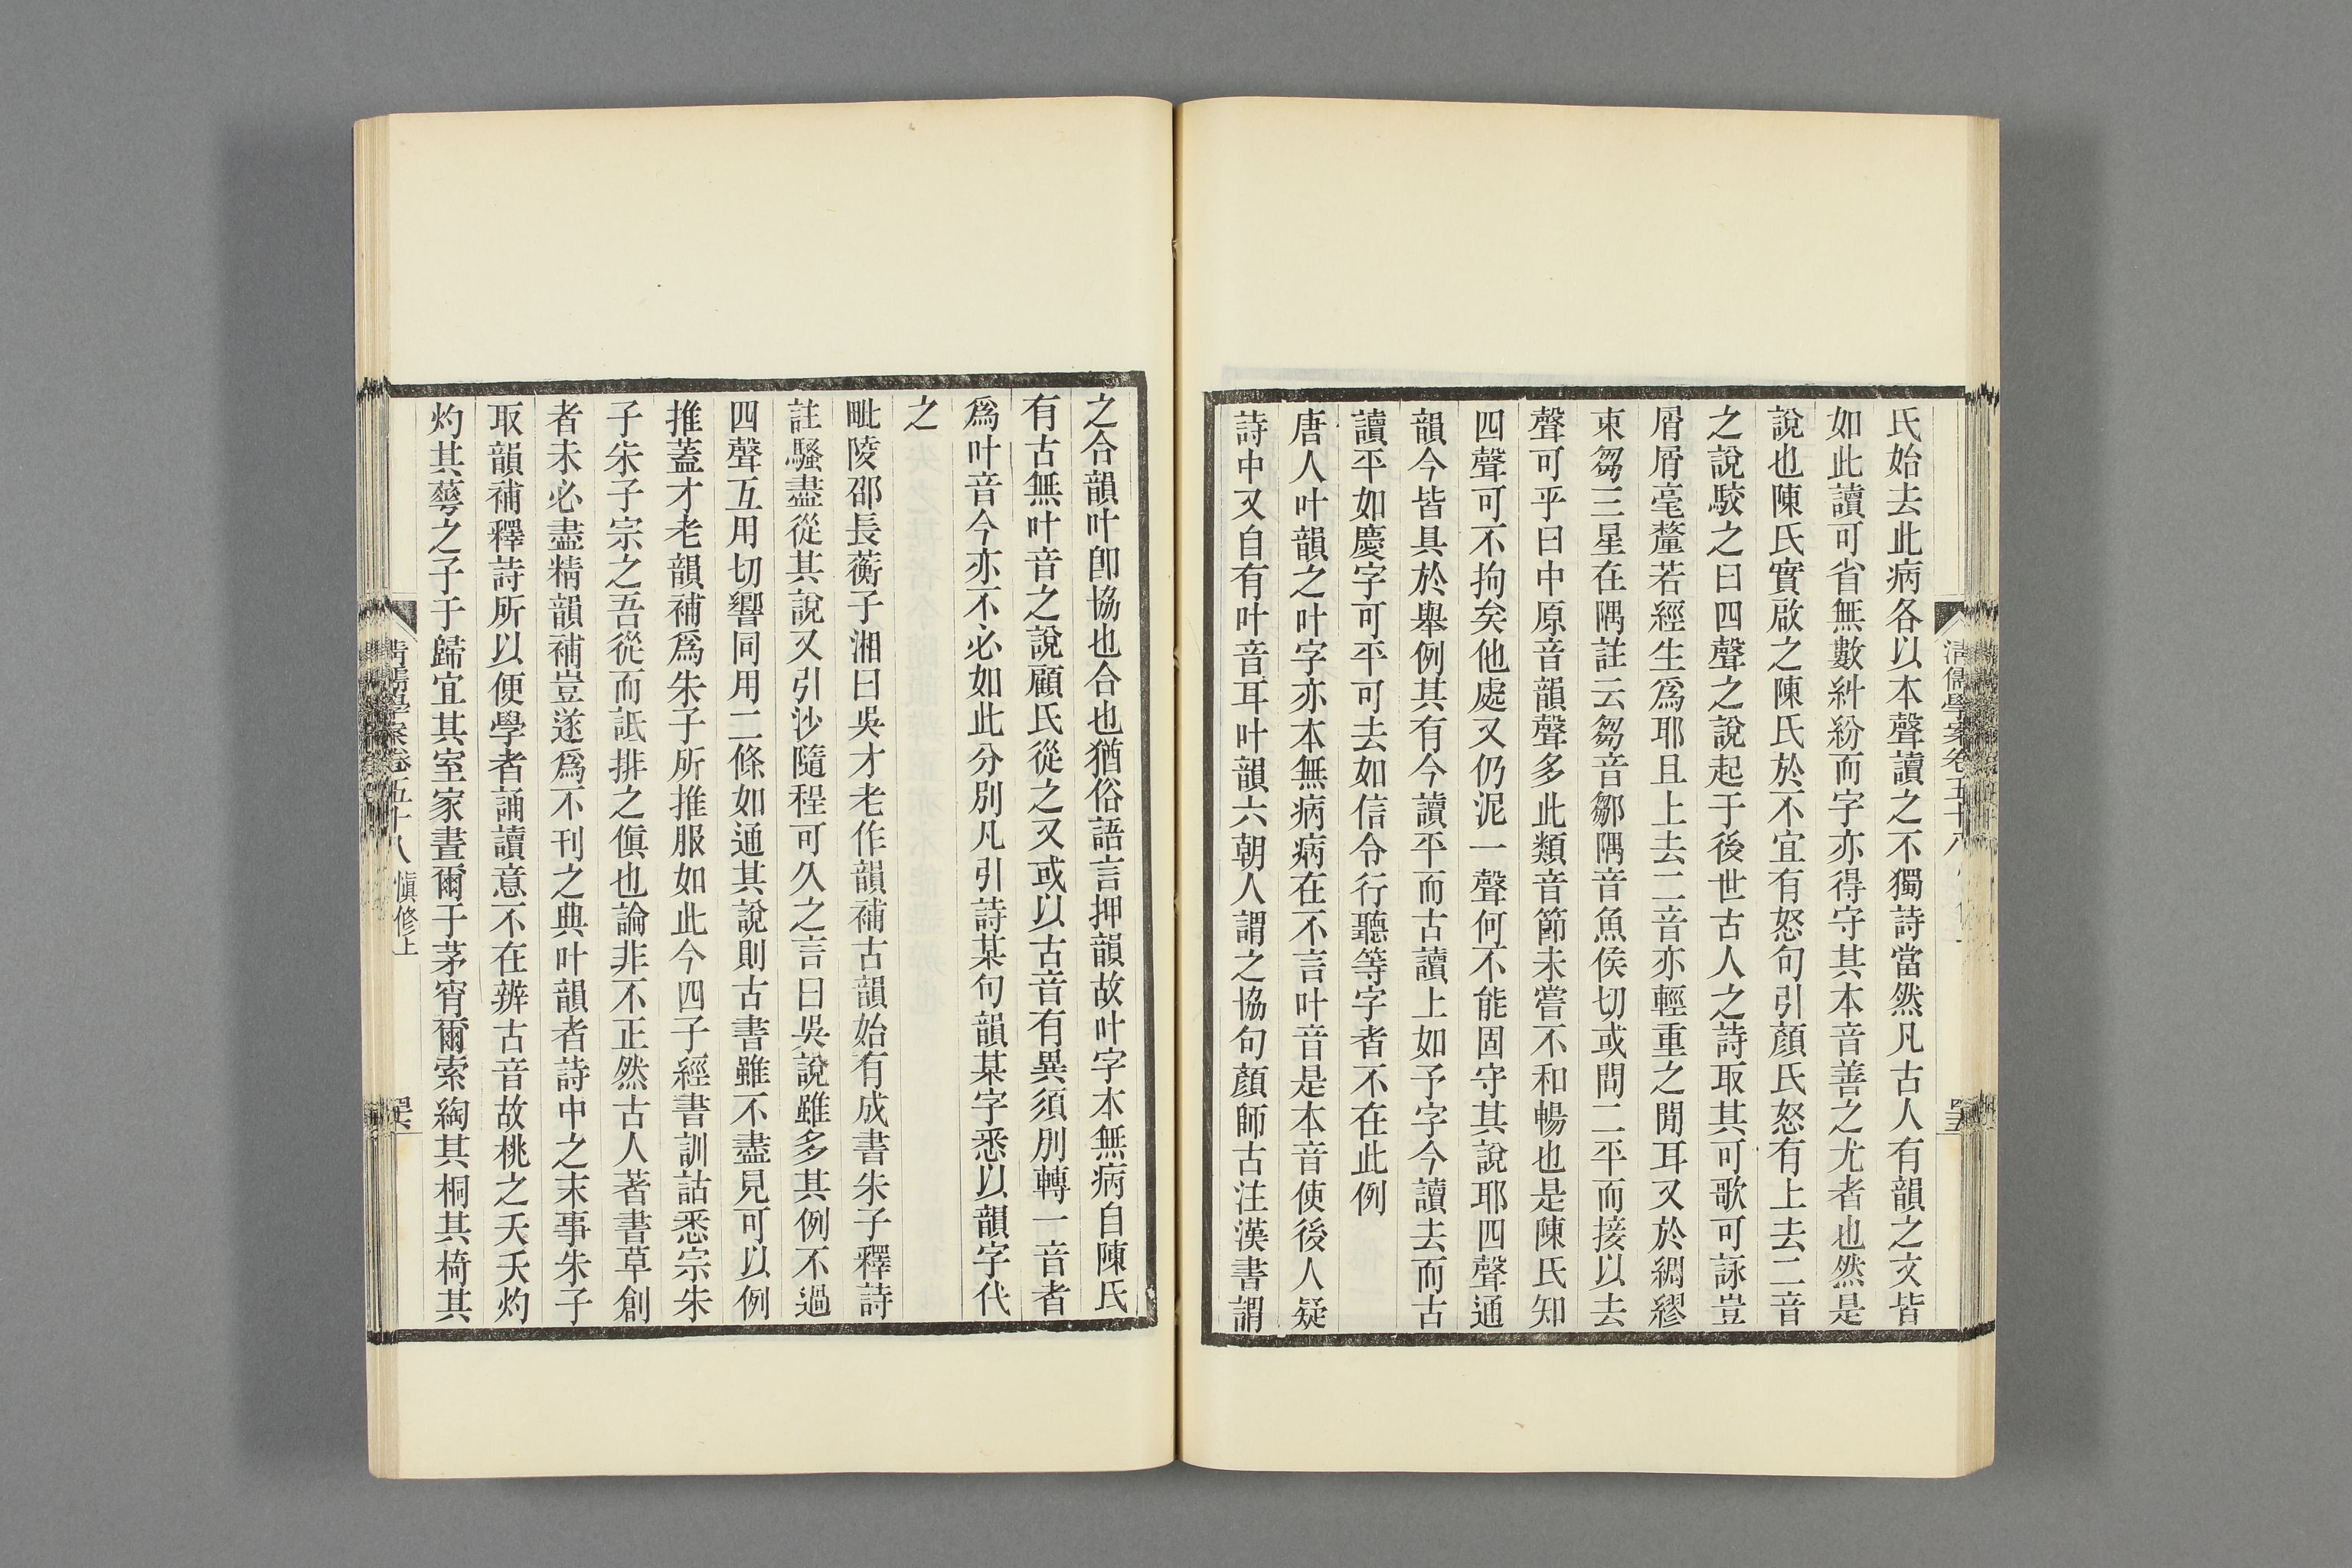 氏始去此病各以本聲讀之不獨詩當然凡古人有韻之文皆
如此讀可省無數糾紛而字亦得守其本音善之尤者也然是
說也陳氏實啟之陳氏於不宜有怒句引顏氏怒有上去二音
之說駮之曰四聲之說起于後世古人之詩取其可歌可詠豈
屑屑毫釐若經生爲耶且上去二音亦輕重之閒耳又於綢繆
束芻三星在隅註云芻音鄒隅音魚侯切或問二平而接以去
聲可乎曰中原音韻聲多此類音節未嘗不和暢也是陳氏知
四聲可不拘矣他處又仍泥一聲何不能固守其說耶四聲通
韻今皆具於舉例其有今讀平而古讀上如予字今讀去而古
讀平如慶字可平可去如信令行聽等字者不在此例
唐人叶韻之叶字亦本無病病在不言叶音是本音使後人疑
詩中又自有叶音耳叶韻六朝人謂之協句顏師古注漢書謂
清儒學案卷五十八
之合韻叶卽協也合也猶俗語言押韻故叶字本無病自陳氏
有古無叶音之說顧氏從之又或以古音有異須別轉一音者
爲叶音今亦不必如此分別凡引詩某句韻某字悉以韻字代
之
毗陵邵長蘅子湘曰吳才老作韻補古韻始有成書朱子釋詩
註騷盡從其說又引沙隨程可久之言曰吳說雖多其例不過
四聲互用切響同用二條如通其說則古書雖不盡見可以例
推蓋才老韻補爲朱子所推服如此今四子經書訓詁悉宗朱
子朱子宗之吾從而詆排之傎也論非不正然古人著書草創
者未必盡精韻補豈遂爲不刊之典叶韻者詩中之末事朱子
取韻補釋詩所以便學者誦讀意不在辨古音故桃之夭夭灼
灼其蕚之子于歸宜其室家晝爾于茅宵爾索綯其桐其椅其
清儒學案卷五十八 愼修上